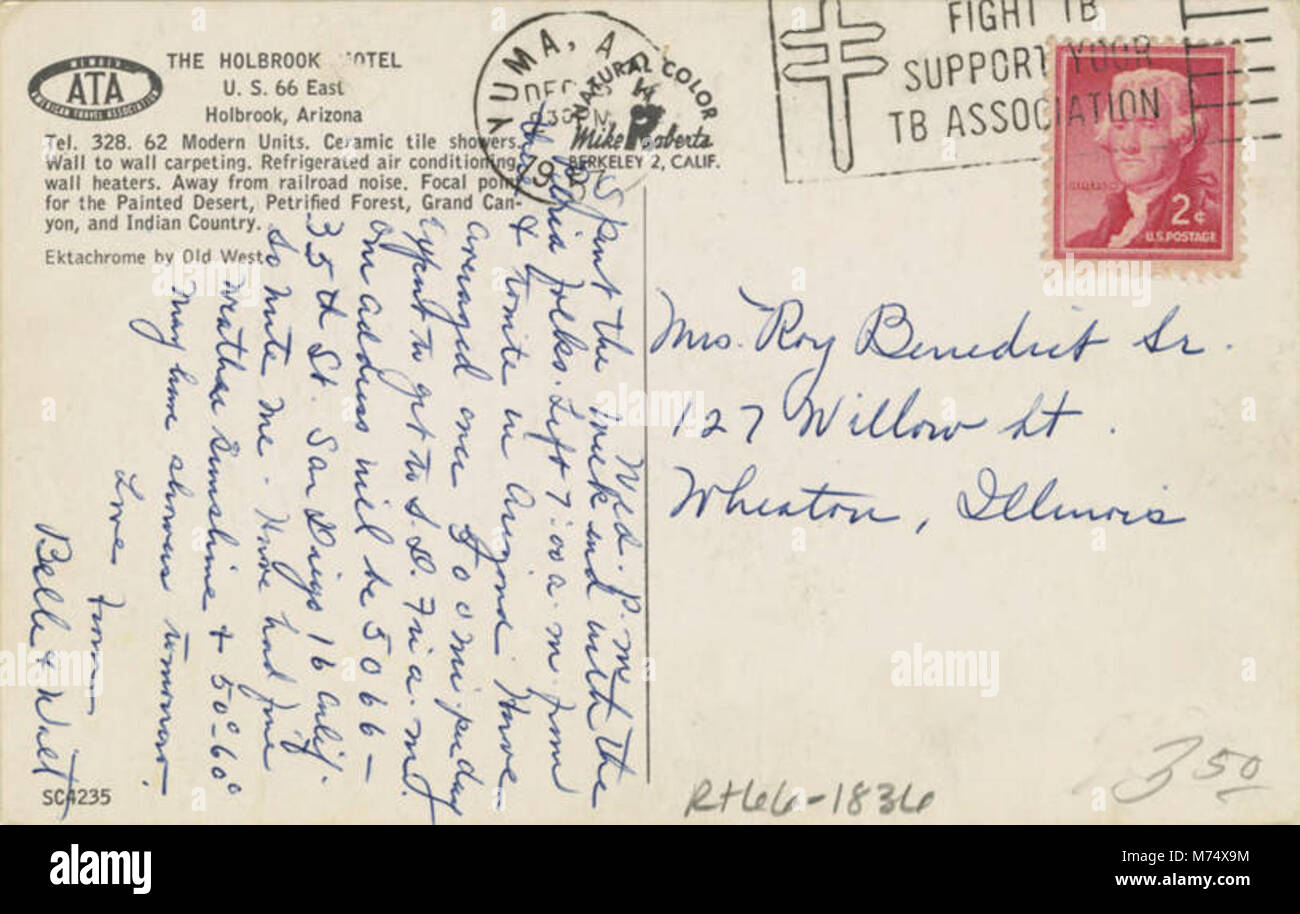 MEMBER
ATA
AMERICAN TRAVEL ASSOCIATION
THE HOLBROOK HOTEL
U. S. 66 East
Holbrook, Arizona
Tel. 328. 62 Modern Units. Ceramic tile showers.
Wall to wall carpeting. Refrigerated air conditioning,
wall heaters. Away from railroad noise. Focal point
for the Painted Desert, Petrified Forest, Grand Can-
yon, and Indian Country.
Ektachrome by Old West
YUMA, ARIZ
DEC
30 PM
19
NATURAL COLOR
Mike Roberts
BERKELEY 2, CALIF.
FIGHT TB
SUPPORT YOUR
TB ASSOCIATION
2¢
U.S. POSTAGE
Wed. P. M.
Spent the week end with the
Peoria folks. Left 7:00 a.m. from
there & tonite in Arizona. Have
averaged over 500 mi. per day
Expect to get to S.D. Fri a.m.
Our address will be 5066-
35th St. San Diego 16 Calif.
So write me. Have had fine
weather sunshine & 50°-60°
May have showers tomorrow.
Love from
Belle & Walt
Mrs. Roy Benedict Sr.
127 Willow St.
Wheaton, Illinois
SC4235
Rt66-1836
3 50
alamy
alamy
alamy
alamy
alamy
Image ID: M74X9M
www.alamy.com